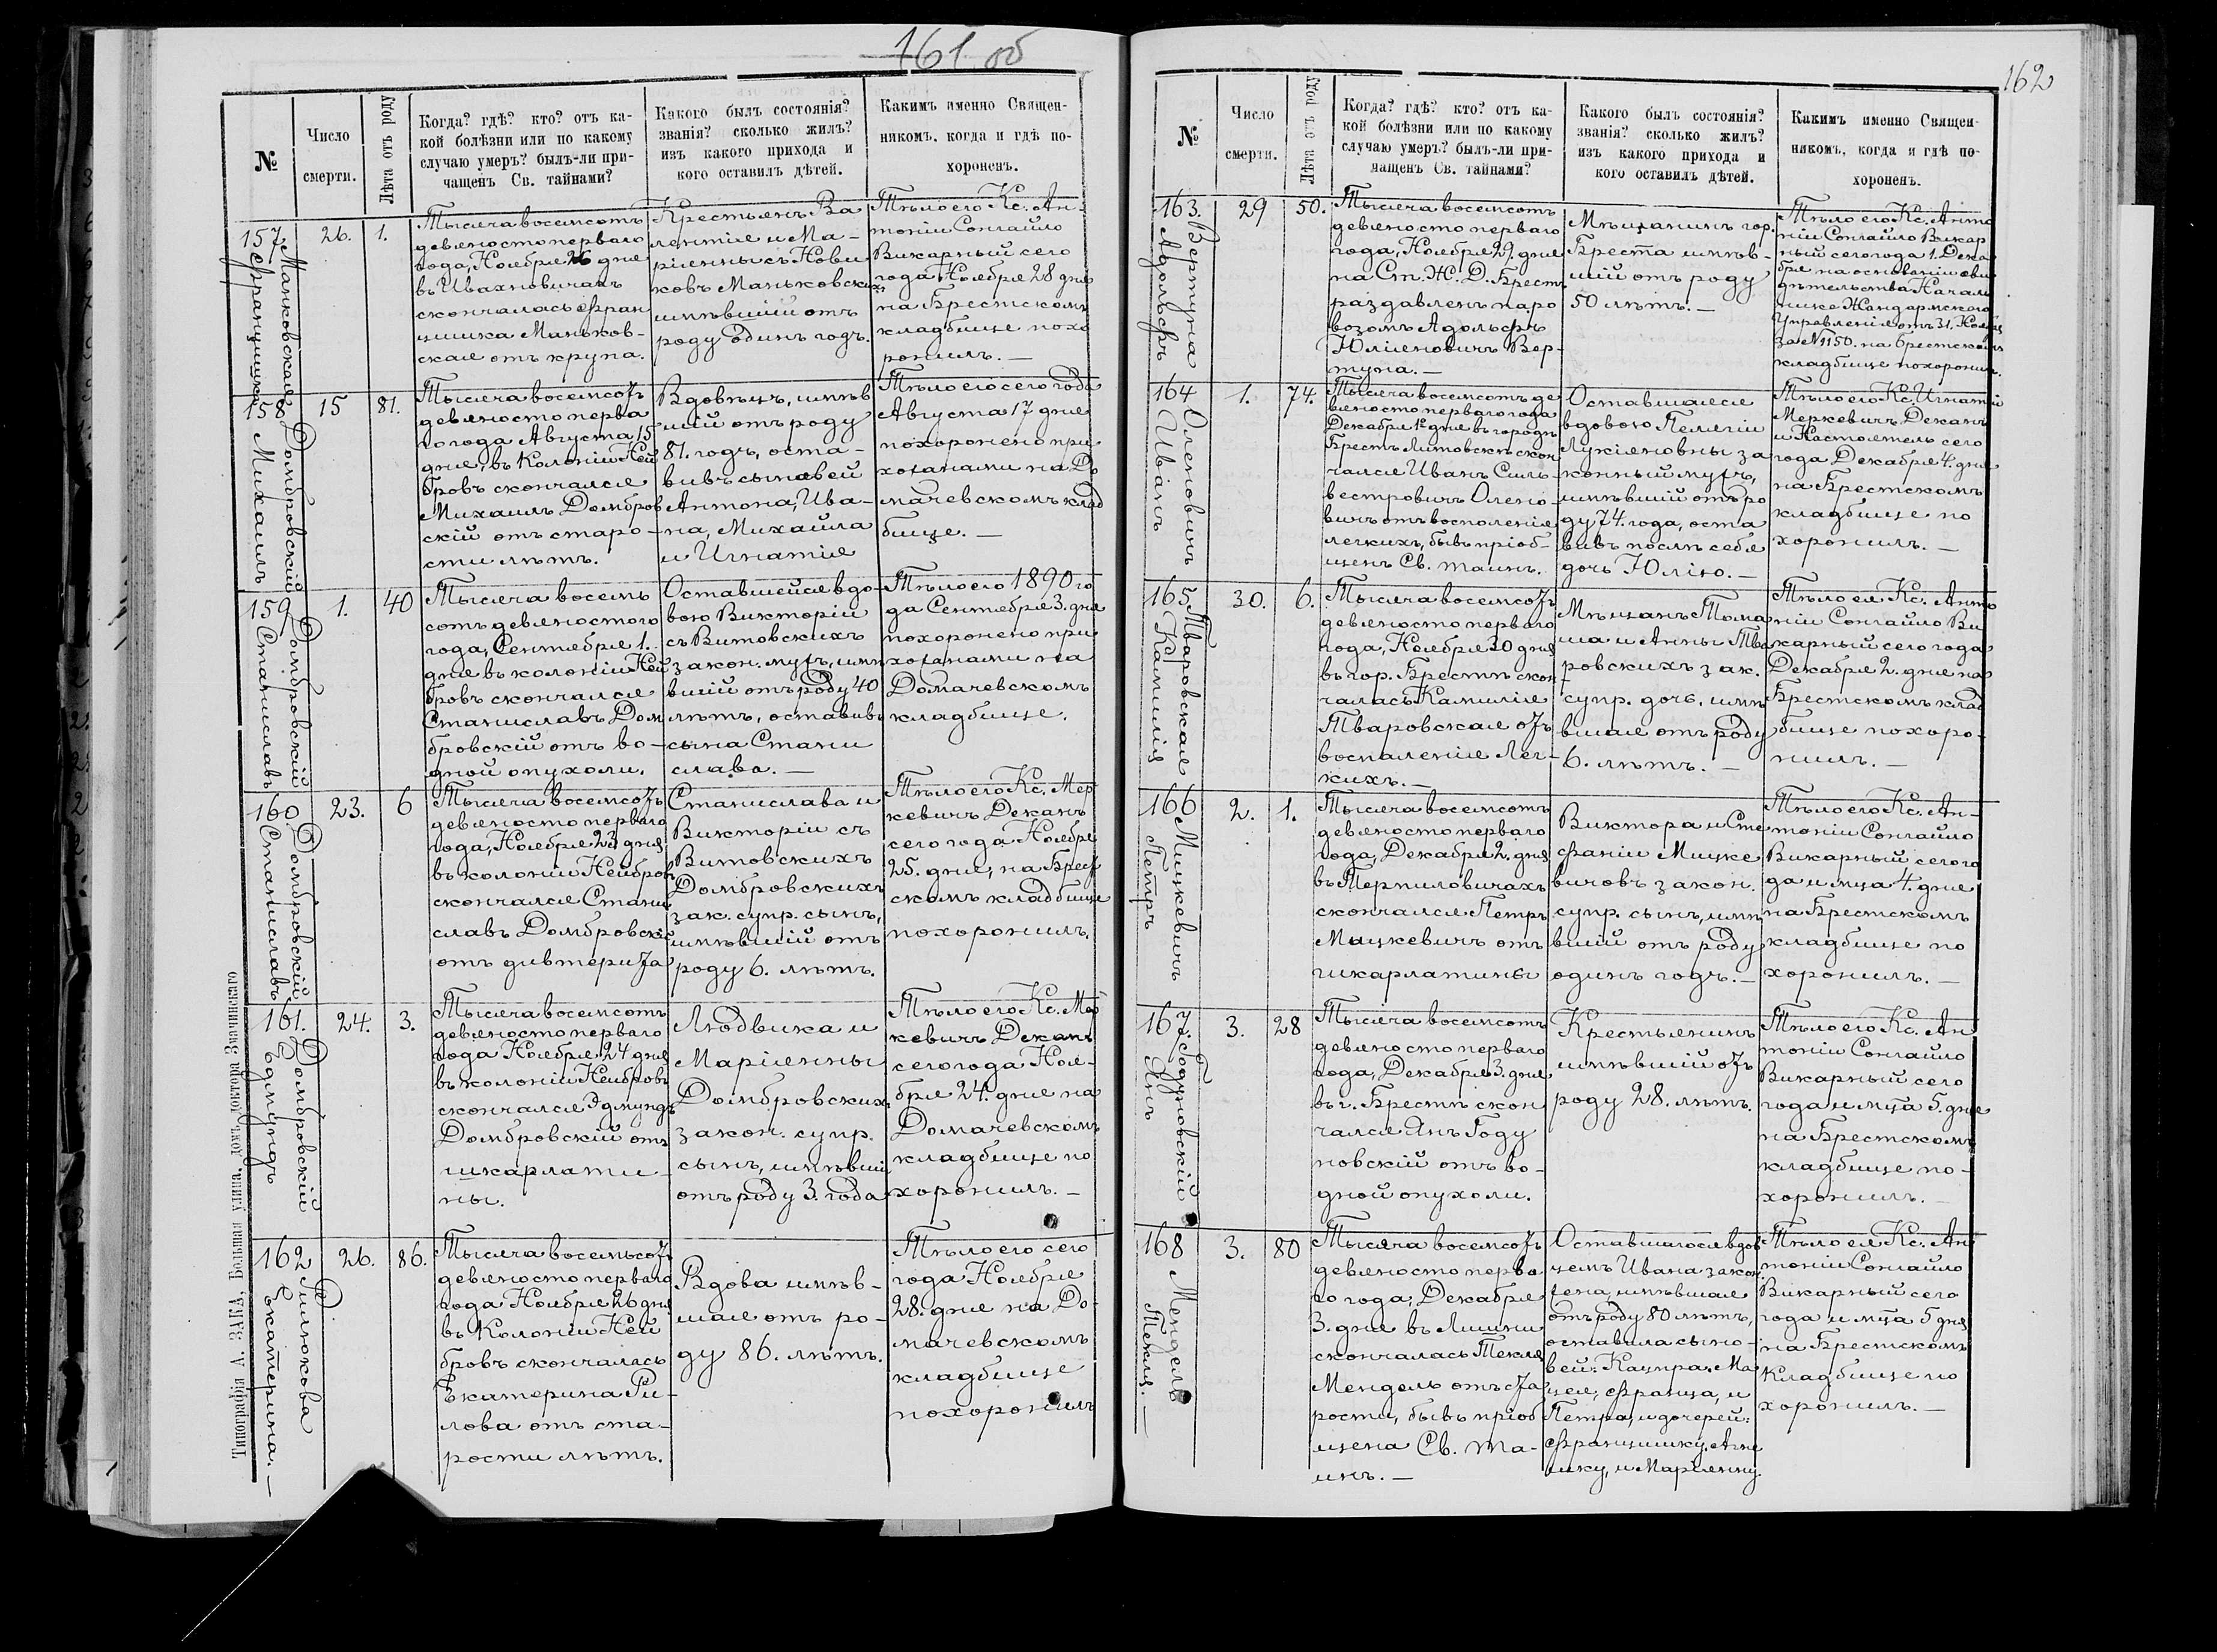 161 об
№
Число
смерти.
Лѣта отъ роду
Когда? гдѣ? кто? отъ ка-
кой болѣзни или по какому
случаю умеръ? былъ-ли при-
чащенъ Св. тайнами?
Какого былъ состоянія?
званія? сколько жилъ?
изъ какого прихода и
кого оставилъ дѣтей.
Какимъ именно Священ-
никомъ, когда и гдѣ по-
хороненъ.
157
Маньковская
Францишка
26.
1.
Тысяча восемсотъ
девяносто перваго
года, Ноября 26 дня
въ Ивахновичахъ
скончалась Фран
цишка Маньков-
ская отъ крупа.
Крестьянъ Ва
лентія и Ма-
ріянны съ Нови
ковъ Маньковскихъ
имѣвшій отъ
роду одинъ годъ.
Тѣло его Кс. Ан-
тоніи Сонгайло
Викарный сего
года Ноября 28 дня
на Брестскомъ
кладбище похо
ронилъ. —
158
Домбровскій
Михаилъ
15
81.
Тысяча восемсотъ
девяносто перва
го года Августа 15
дня, въ Колоніи Ней
бровъ скончался
Михаилъ Домбров
скій отъ старо-
сти лѣтъ.
Вдовѣцъ, имѣв
шій отъ роду
81. годъ, оста-
вивъ сыновей
Антона, Ива-
на, Михайла
и Игнатія
Тѣло его сего года
Августа 17 дня
похоронено при
хожанами на До
мачевскомъ клад
бище. —
159
Домбровскій
Станиславъ
1.
40
Тысяча восемь
сотъ девяностого
года, Сентября 1.
дня въ колоніи Ней
бровъ скончался
Станиславъ Дом
бровскій отъ во-
дной опухоли.
Оставшейся вдо-
вою Викторіи
съ Витовскихъ
закон. мужъ, имѣ
вшій отъ роду 40
лѣтъ, оставивъ
сына Стани
слава. —
Тѣло его 1890 го
да Сентября 3. дня
похоронено при
хожанами на
Домачевскомъ
кладбище.
160
Домбровскій
Станиславъ
23.
6
Тысяча восемсотъ
девяносто перваго
года, Ноября 23 дня
въ колоніи Нейбровъ
скончался Стани
славъ Домбровскій
отъ дивтерита
Станислава и
Викторіи съ
Витовскихъ
Домбровскихъ
зак. супр. сынъ,
имѣвшій отъ
роду 6. лѣтъ.
Тѣло его Кс. Мер
кевичъ Деканъ
сего года Ноября
25. дня, на Брест
скомъ кладбище
похоронилъ.
161.
Домбровскій
Эдмундъ
24.
3.
Тысяча восемсотъ
девяносто перваго
года Ноября 24 дня
въ колоніи Нейбровъ
скончался Эдмундъ
Домбровскій отъ
шкарлати
ны.
Людвика и
Маріянны
Домбровскихъ
закон. супр.
сынъ, имѣвшій
отъ роду 3. года
Тѣло его Кс. Мер
кевичъ Деканъ
сего года Ноя-
бря 24. дня на
Домачевскомъ
кладбище по
хоронилъ. —
162
Екатерина. —
26.
86.
Тысяча восемьсотъ
девяносто перваго
года Ноября 26 дня
въ Колоніи Ней
бровъ скончалась
Екатерина Ри-
лова отъ ста-
рости лѣтъ.
Вдова имѣв-
шая отъ ро-
ду 86. лѣтъ.
Тѣло его сего
года Ноября
28. дня на До-
мачевскомъ
кладбище
похоронилъ
Типографія А. ЗАКА, Большая улица, домъ доктора Змачинскаго
162
№
Число
смерти.
Лѣта отъ роду
Когда? гдѣ? кто? отъ ка-
кой болѣзни или по какому
случаю умеръ? былъ-ли при-
чащенъ Св. тайнами?
Какого былъ состоянія?
званія? сколько жилъ?
изъ какого прихода и
кого оставилъ дѣтей.
Какимъ именно Священ-
никомъ, когда и гдѣ по-
хороненъ.
163.
Вертуна
Адольфъ
29
50.
Тысяча восемсотъ
девяносто перваго
года, Ноября 29. дня
на Ст. Ж. Д. Брестъ
раздавленъ паро
возомъ Адольфъ
Юліяновичъ Вер-
туна. —
Мѣщанинъ гор.
Бреста имѣв-
шій отъ роду
50 лѣтъ. —
Тѣло его Кс. Анто
ніи Сонгайло Викар
ный сего года 1. Дека
бря на основаніи сви
дѣтельства Началь
ника Жандармского
Управленія отъ 31. Ноября
за № 1150. на Брестскомъ
кладбище похоронилъ.
164
Оленовичъ
Иванъ
1.
74.
Тысяча восемсотъ де
вяносто перваго года
Декабря 1го дня въ городѣ
Брестъ Литовскѣ скон
чался Иванъ Силь-
вестровичъ Олено-
вичъ отъ восполенія
легкихъ, бывъ пріоб-
щенъ Св. таинъ.
Оставшаяся
вдовою Пелягіи
Лукіяновны за
конный мужъ,
имѣвшій отъ ро
ду 74. года, оста
вивъ послѣ себя
дочь Юлію. —
Тѣло его Кс. Игнатій
Меркевичъ Деканъ
и Настоятель сего
года Декабря 4. дня
на Брестскомъ
кладбище по
хоронилъ. —
165
Тваровская
Камилія
30.
6.
Тысяча восемсотъ
девяносто перваго
года, Ноября 30 дня
въ гор. Брестѣ скон
чалась Камилія
Тваровская отъ
воспаленія Лег-
кихъ. —
Мѣщанъ Тома
ша и Анны Тва
ровскихъ зак.
супр. дочь, имѣ
вшая отъ роду
6. лѣтъ. —
Тѣло ея Кс. Анто
ніи Сонгайло Ви
карный сего года
Декабря 2. дня на
Брестскомъ клад
бище похоро-
нилъ. —
166
Мицкевичъ
Петръ
2.
1.
Тысяча восемсотъ
девяносто перваго
года, Декабря 2. дня
въ Терпиловичахъ
скончался Петръ
Мицкевичъ отъ
шкарлатины
Виктора и Сте
фаніи Мицке
вичовъ закон.
супр. сынъ, имѣ
вшій отъ роду
одинъ годъ. —
Тѣло его Кс. Ан-
тоніи Сонгайло
Викарный сего го
да и мца 4. дня
на Брестскомъ
кладбище по
хоронилъ. —
167.
Годуновскій
Янъ
3.
28
Тысяча восемсотъ
девяносто перваго
года, Декабря 3. дня
въ г. Брестѣ скон
чался Янъ Году
новскій отъ во-
дной опухоли.
Крестьянинъ
имѣвшій отъ
роду 28. лѣтъ.
Тѣло его Кс. Ан
тоніи Сонгайло
Викарный сего
года и мца 5. дня
на Брестскомъ
кладбище по-
хоронилъ. —
168
Мендель
Текля. —
3.
80
Тысяча восемсотъ
девяносто перва
го года, Декабря
3. дня въ Лишни
скончалась Текля
Мендель отъ ста
рости, бывъ пріоб
щена Св. та-
инъ. —
Оставшагося вдов
цемъ Ивана закон.
жена, имѣвшая
отъ роду 80 лѣтъ,
оставила сыно-
вей: Каспра, Ма
цея, Франца, и
Петра, и дочерей:
Францишку, Агне
шку, и Маріянну.
Тѣло ея Кс. Ан
тоніи Сонгайло
Викарный сего
года и мца 5 дня
на Брестскомъ
Кладбище по
хоронилъ. —